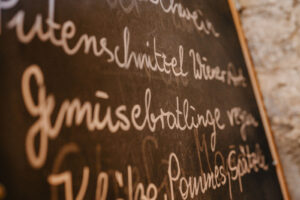 Putenschnittel Wiener Art
Gemüsebratlinge vegan
Pommes, Spätzle